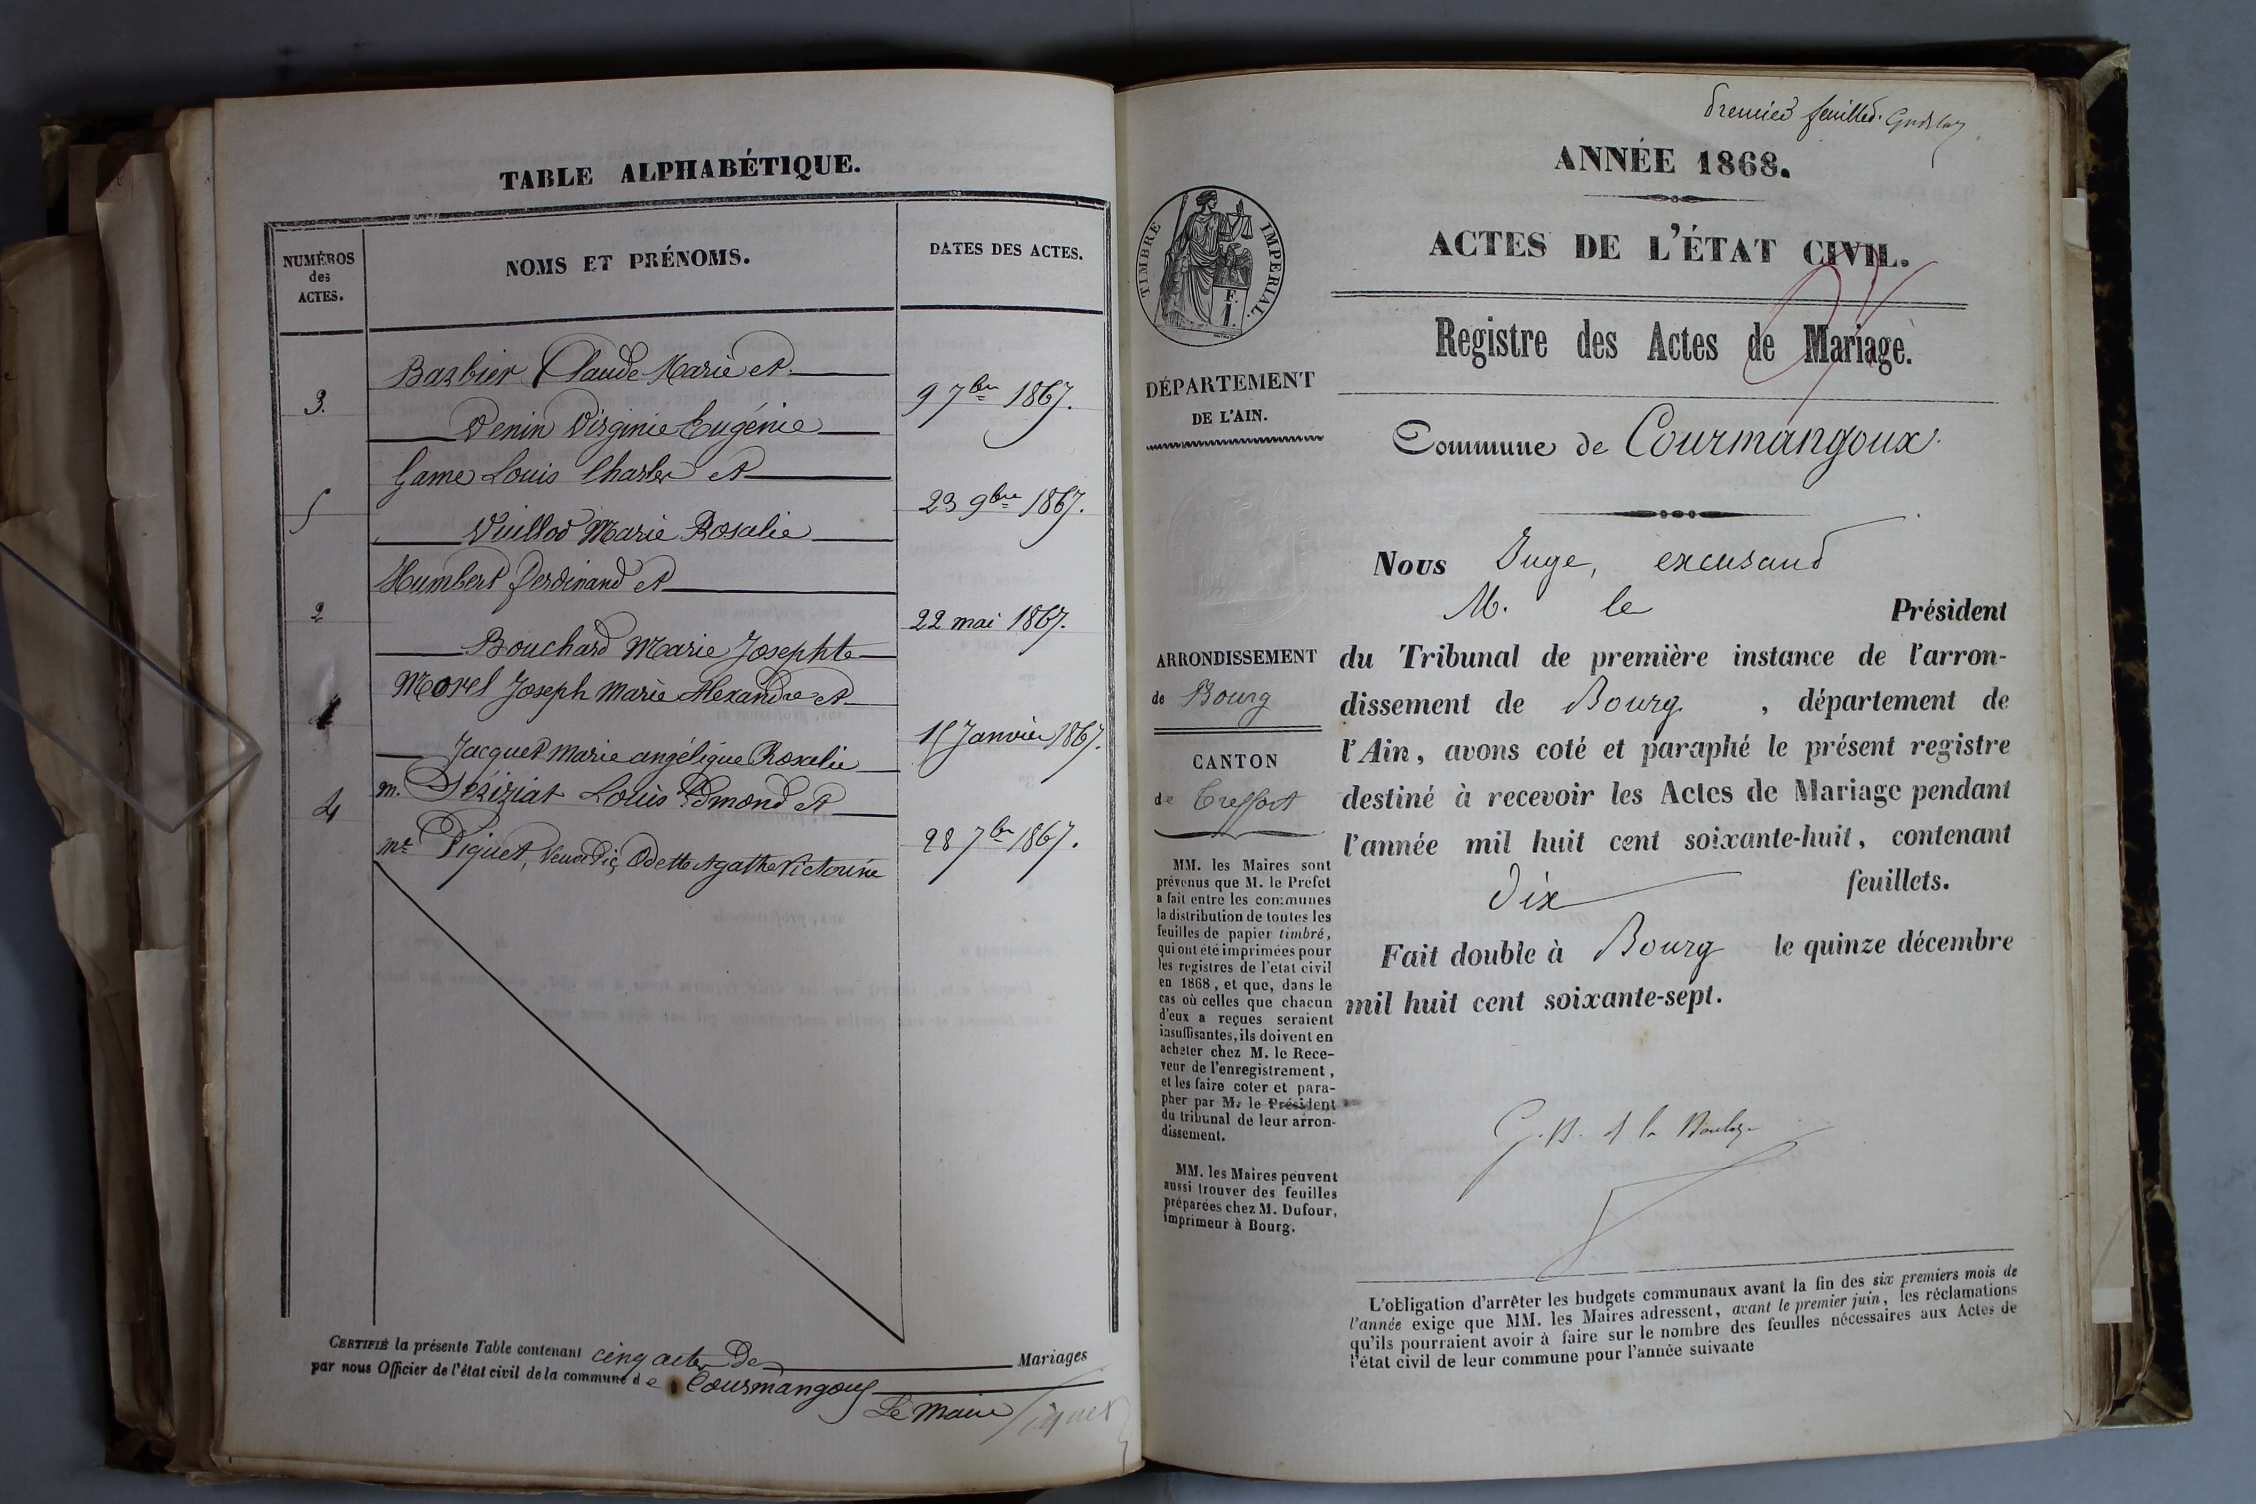 TABLE ALPHABÉTIQUE.
NUMÉROS
des
ACTES.
NOMS ET PRÉNOMS.
DATES DES ACTES.
Barbier Claude Marie et
3. 9 7bre 1867.
Venin Virginie Eugénie
Game Louis Charles et
5 23 9bre 1867.
Vuillod Marie Rosalie
Humbert Ferdinand et
2 22 mai 1867.
Bouchard Marie Josephte
Morel Joseph Marie Alexandre et
1 15 Janvier 1867.
Jacquet Marie angélique Rosalie
m. Séziziat Louis Edmond et
4 28 7bre 1867.
me Piguet, Odette Agathe Victorine
CERTIFIÉ la présente Table contenant cinq actes de Mariages
par nous Officier de l'état civil de la commune de Courmangoux
Le Maire Piquet
Premier feuillet.
ANNÉE 1868.
ACTES DE L'ÉTAT CIVIL.
TIMBRE IMPERIAL.
F.
1.
Registre des Actes de Mariage.
DÉPARTEMENT
DE L'AIN.
Commune de Courmangoux.
Nous Juge, excusant
M. le Président
ARRONDISSEMENT
de Bourg
CANTON
de Treffort
du Tribunal de première instance de l'arron-
dissement de Bourg, département de
l'Ain, avons coté et paraphé le présent registre
destiné à recevoir les Actes de Mariage pendant
l'année mil huit cent soixante-huit, contenant
dix feuillets.
Fait double à Bourg le quinze décembre
mil huit cent soixante-sept.
MM. les Maires sont
prévenus que M. le Préfet
a fait entre les communes
la distribution de toutes les
feuilles de papier timbré,
qui ont été imprimées pour
les registres de l'état civil
en 1868, et que, dans le
cas où celles que chacun
d'eux a reçues seraient
insuffisantes, ils doivent en
acheter chez M. le Rece-
veur de l'enregistrement,
et les faire coter et para-
pher par M. le Président
du tribunal de leur arron-
dissement.
MM. les Maires peuvent
aussi trouver des feuilles
préparées chez M. Dufour,
imprimeur à Bourg.
L'obligation d'arrêter les budgets communaux avant la fin des six premiers mois de
l'année exige que MM. les Maires adressent, avant le premier juin, les réclamations
qu'ils pourraient avoir à faire sur le nombre des feuilles nécessaires aux Actes de
l'état civil de leur commune pour l'année suivante